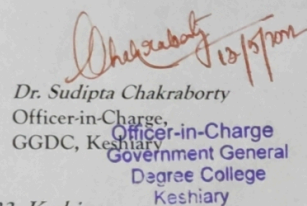 Chakraborty
Dr. Sudipta Chakraborty
Officer-in-Charge,
GGDC, Keshiary
Officer-in-Charge
Government General
Degree College
Keshiary